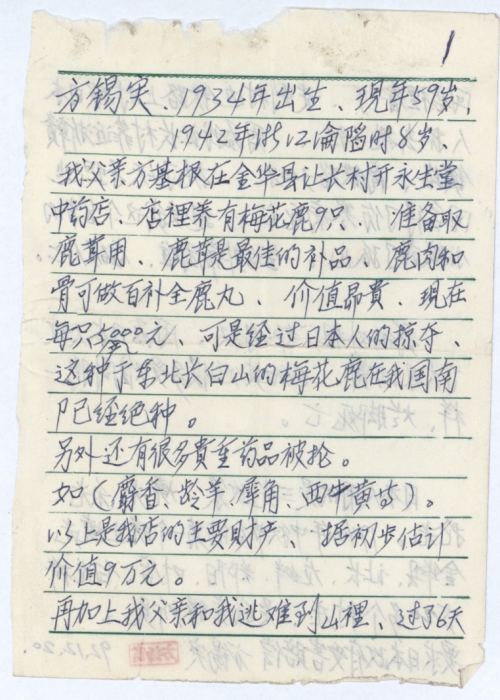 1
方锡实、1934年出生、现年59岁,
1942年浙江沦陷时8岁、
我父亲方基根在金华县让长村开永生堂
中药店、店裡养有梅花鹿9只、准备取
鹿茸用、鹿茸是最佳的补品 鹿肉和
骨可做百补全鹿丸、价值昂貴、现在
每只5000元、可是经过日本人的掠夺、
这种于东北长白山的梅花鹿在我国南
阝已经绝种。
另外还有很多貴重药品被抢。
如(麝香、羚羊、犀角、西牛黄等)。
以上是我店的主要财产、 括初步估计
价值9万元。
再加上我父亲和我逃难到山裡、过了6天